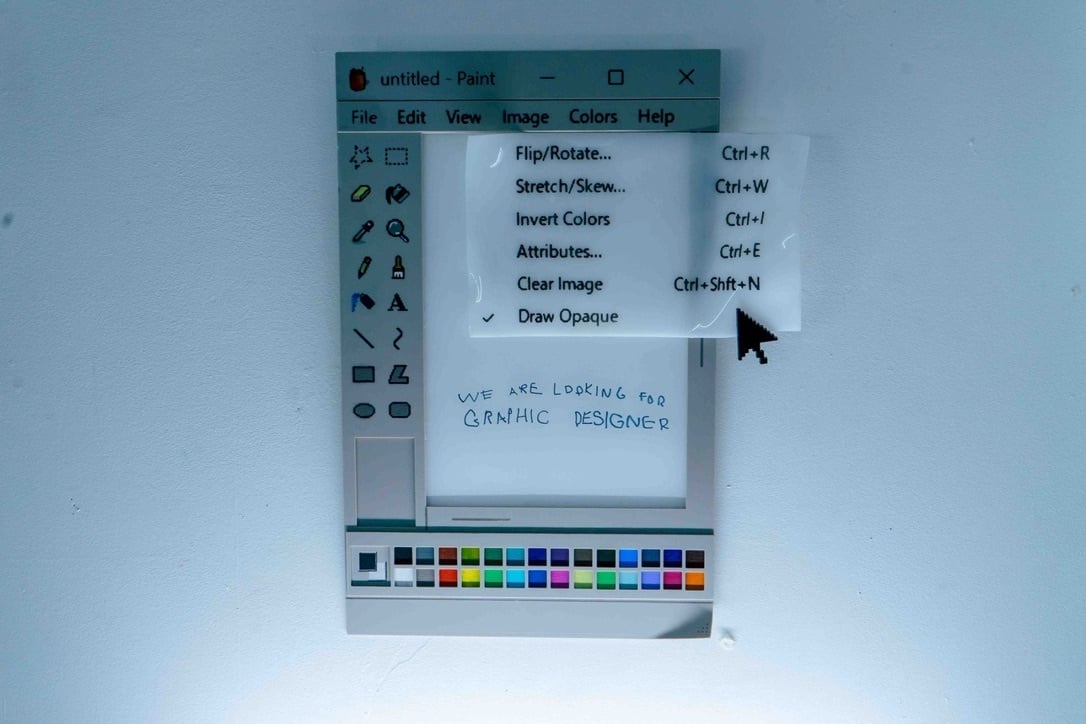 untitled - Paint
File Edit View Image Colors Help
Flip/Rotate... Ctrl+R
Stretch/Skew... Ctrl+W
Invert Colors Ctrl+I
Attributes... Ctrl+E
Clear Image Ctrl+Shft+N
✓ Draw Opaque
A
WE ARE LOOKING FOR
GRAPHIC DESIGNER